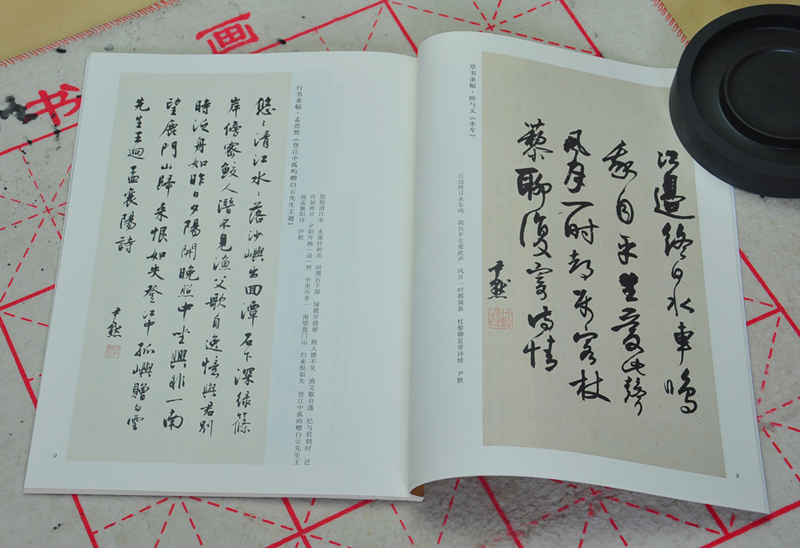 画
书
江邊終日水車鳴
我自平生愛此聲
風月一時都屬客杖
藜聊復寄詩情
尹默
江边终日水车鸣 我自平生爱此声 风月一时都属客 杖藜聊复寄诗情 尹默
草书条幅·陈与义《水车》
8
悠〻清江水〻落沙嶼出回潭石下深綠篠
岸傍密鮫人潛不見漁父歌自逸憶與君別
時泛舟如昨日夕陽開晚照中坐興非一南
望鹿門山歸來恨如失登江中孤嶼贈白雲
先生王迥孟襄陽詩
尹默
行书条幅·孟浩然《登江中孤屿赠白云先生王迥》
悠悠清江水 水落沙屿出 回潭石下深 绿筱岸傍密 鲛人潜不见 渔父歌自逸 忆与君别时 泛
舟如昨日 夕阳开晚（返）照 中坐兴非一 南望鹿门山 归来恨如失 登江中孤屿赠白云先生王
迥孟襄阳诗 尹默
9